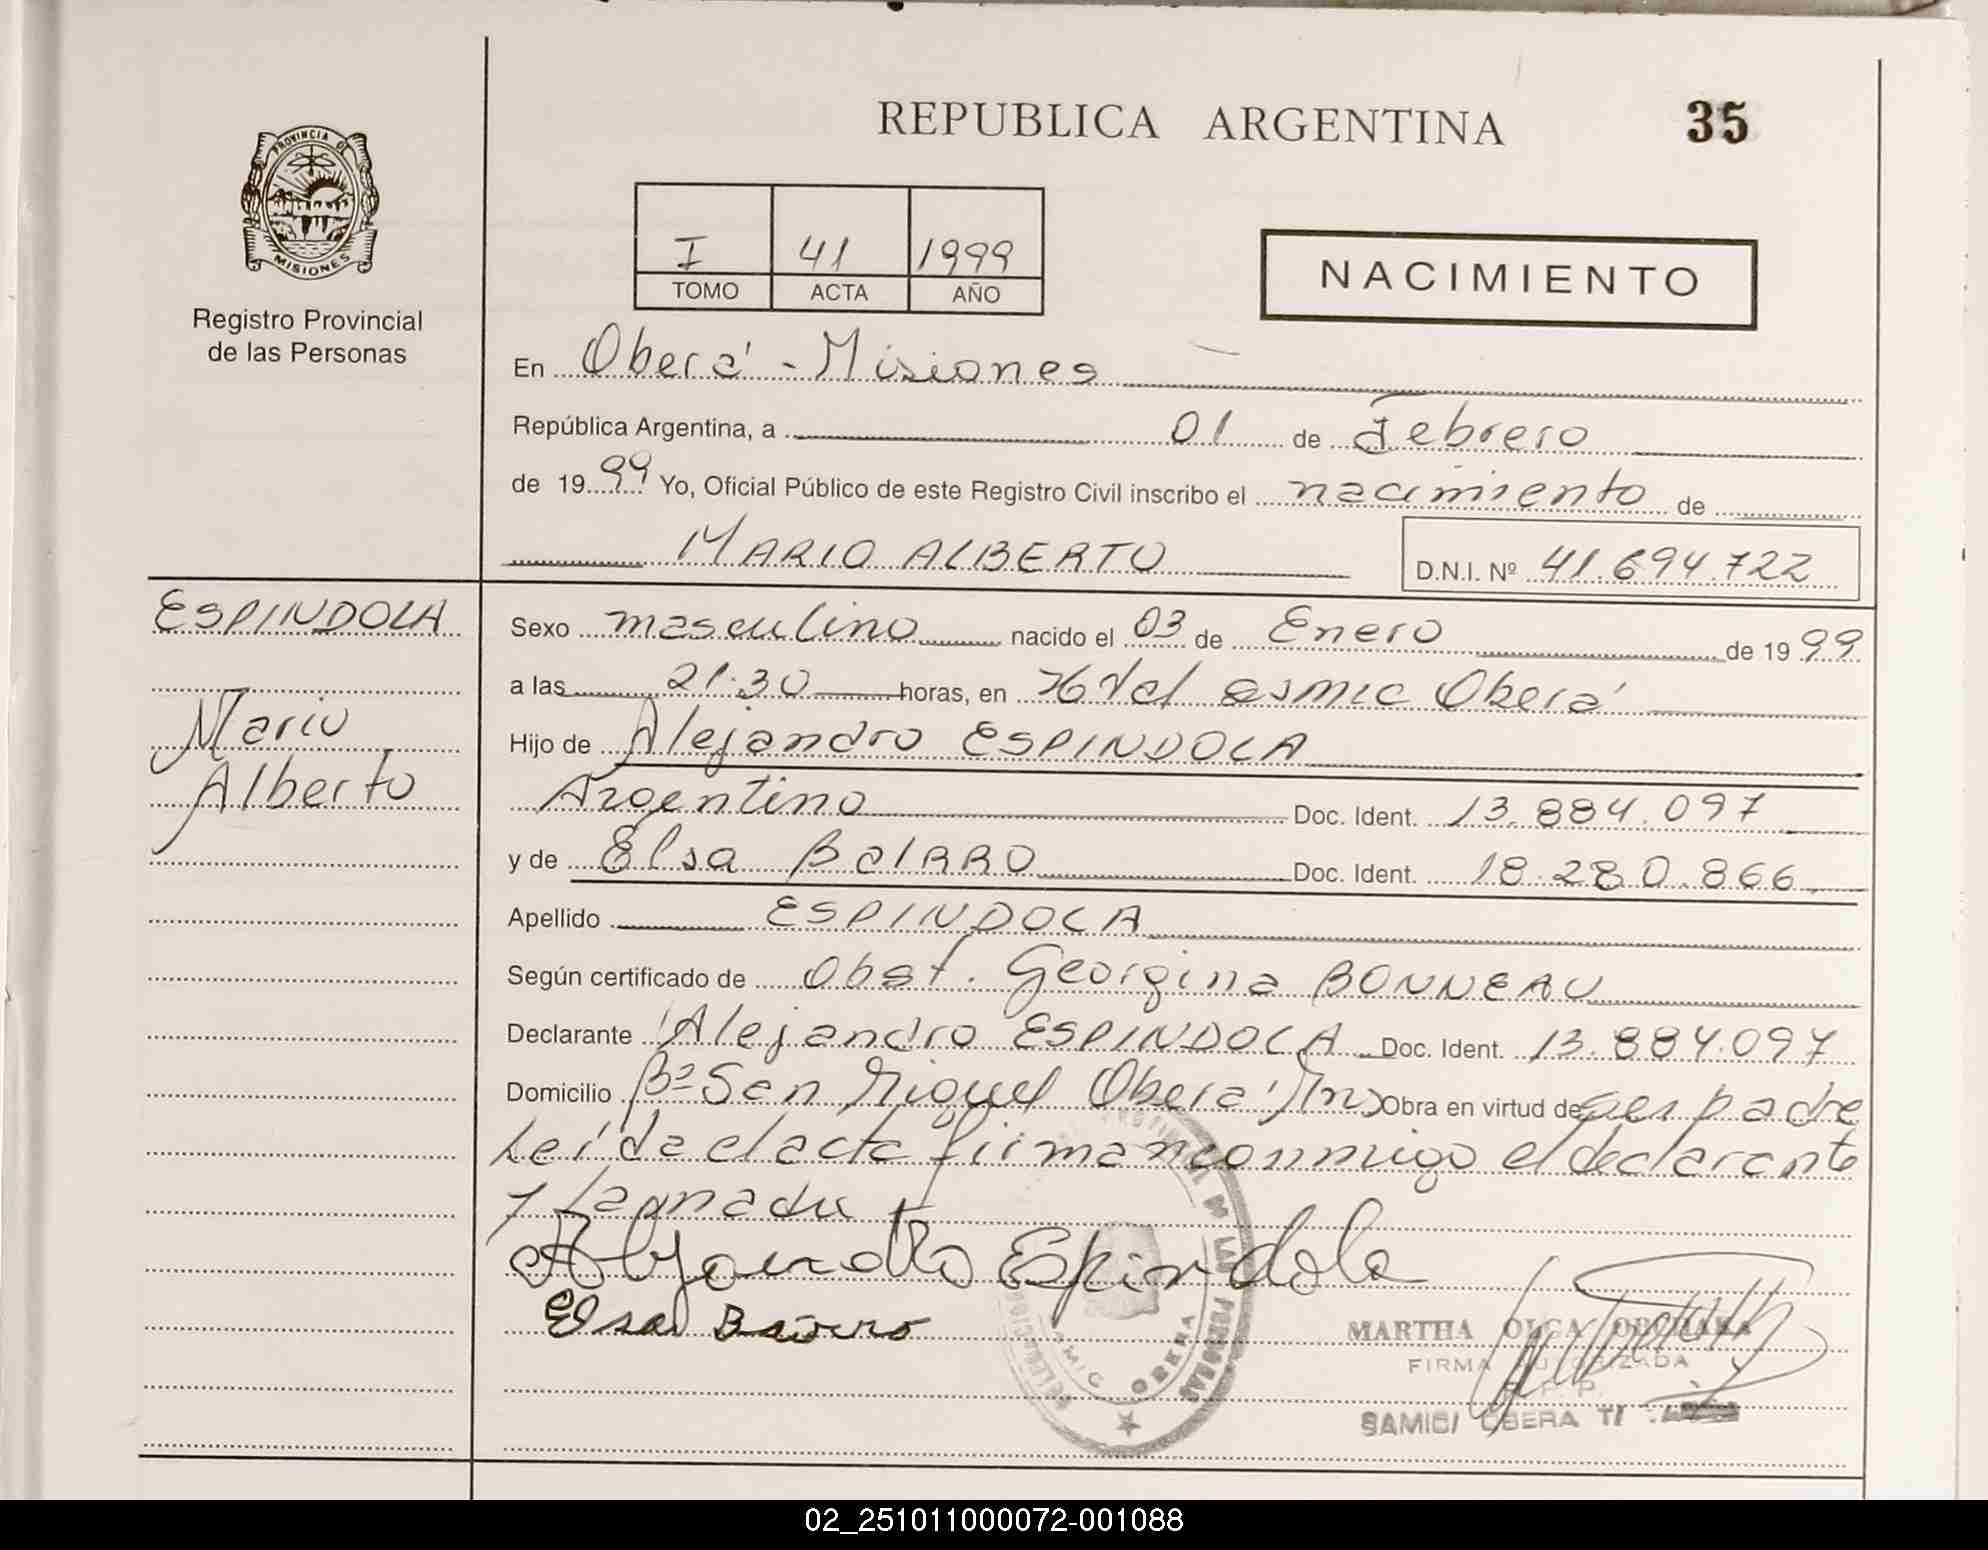 REPUBLICA ARGENTINA 35
PROVINCIA DE
MISIONES
Registro Provincial
de las Personas
I 41 1999
TOMO ACTA AÑO
NACIMIENTO
En Oberá - Misiones
República Argentina, a 01 de Febrero
de 1999 Yo, Oficial Público de este Registro Civil inscribo el nacimiento de
MARIO ALBERTO D.N.I. Nº 41.694.722
ESPINDOLA
Mario
Alberto
Sexo masculino nacido el 03 de Enero de 1999
a las 21:30 horas, en Oberá
Hijo de Alejandro ESPINDOLA
Argentino Doc. Ident. 13.884.097
y de Elsa Doc. Ident. 18.280.866
Apellido ESPINDOLA
Según certificado de Obst. Georgina BONNEAU
Declarante Alejandro ESPINDOLA Doc. Ident. 13.884.097
Domicilio Bº San Miguel Oberá Mnes Obra en virtud de ser padre
Leída el acta firman conmigo el declarante
y
Alejandro Espindola
Elsa
DE LAS PERSONAS
OBERA
MARTHA OLGA
FIRMA AUTORIZADA
R. P. P.
SAMIC/ OBERA
02_251011000072-001088